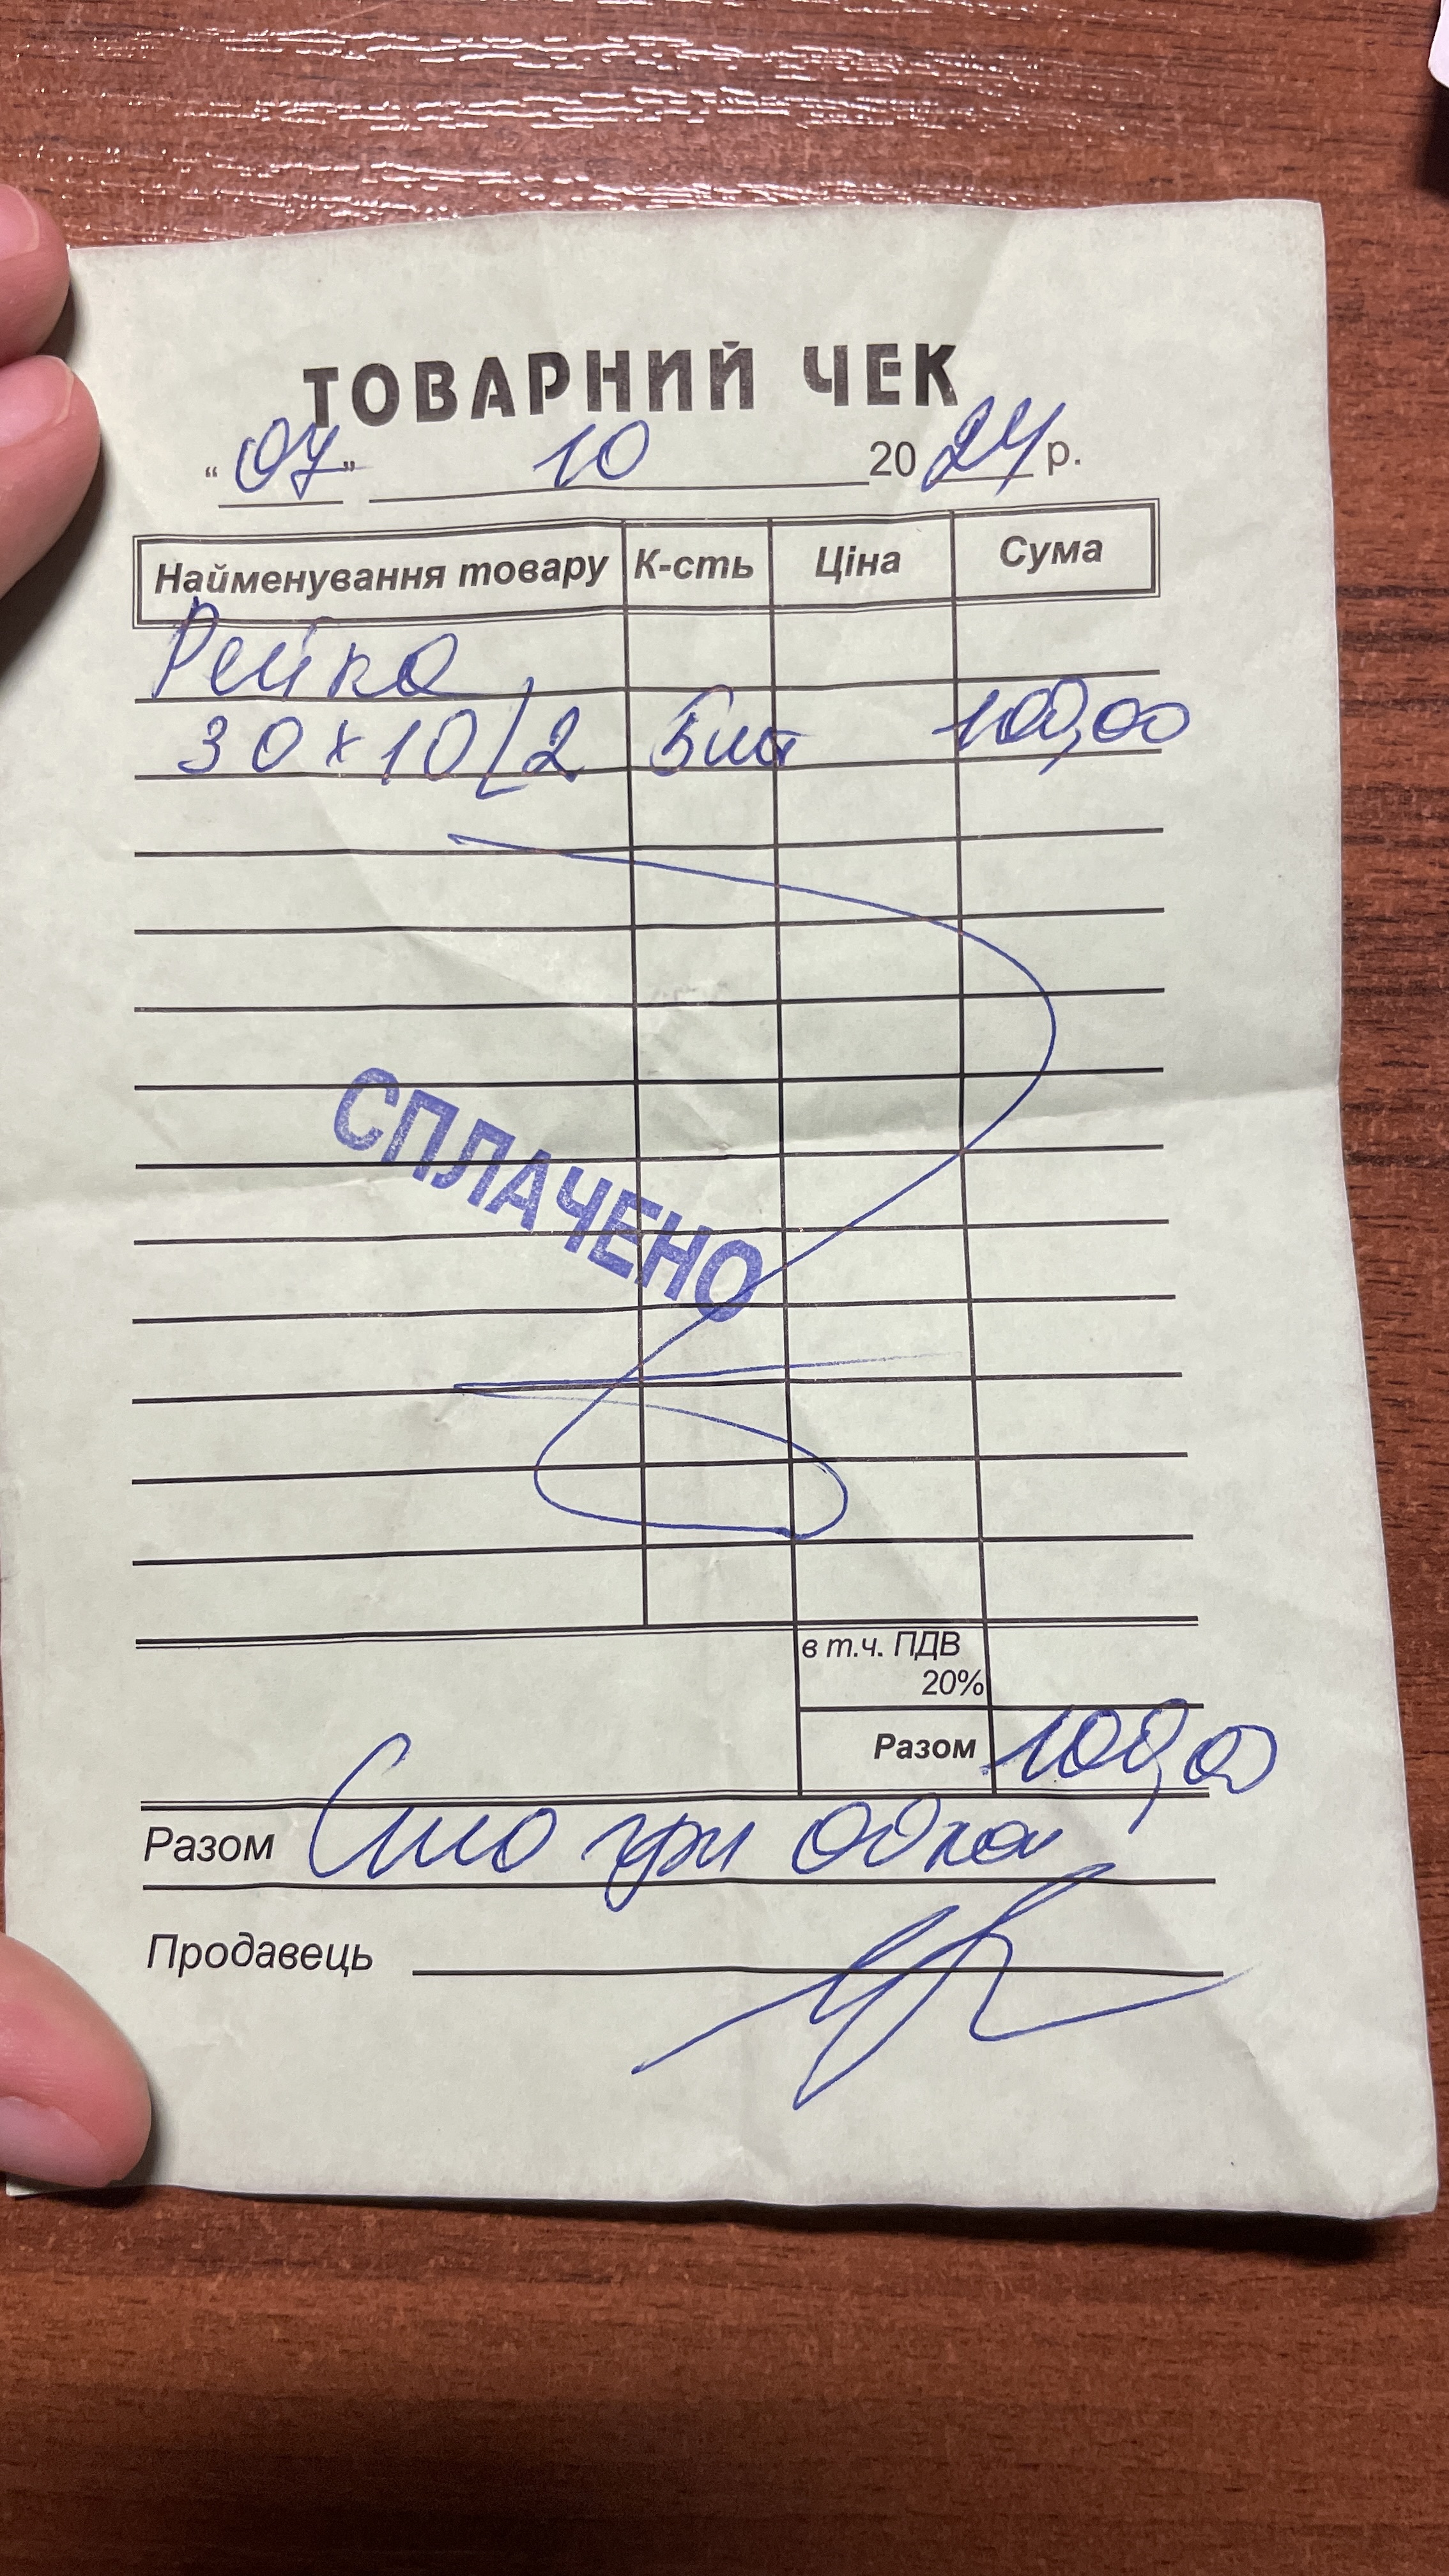 ТОВАРНИЙ ЧЕК
"07" 10 2024 р.
Найменування товару К-сть Ціна Сума
Рейка
30х10 L2 5шт 100,00
СПЛАЧЕНО
в т.ч. ПДВ
20%
Разом 100,00
Разом Сто грн 00коп
Продавець